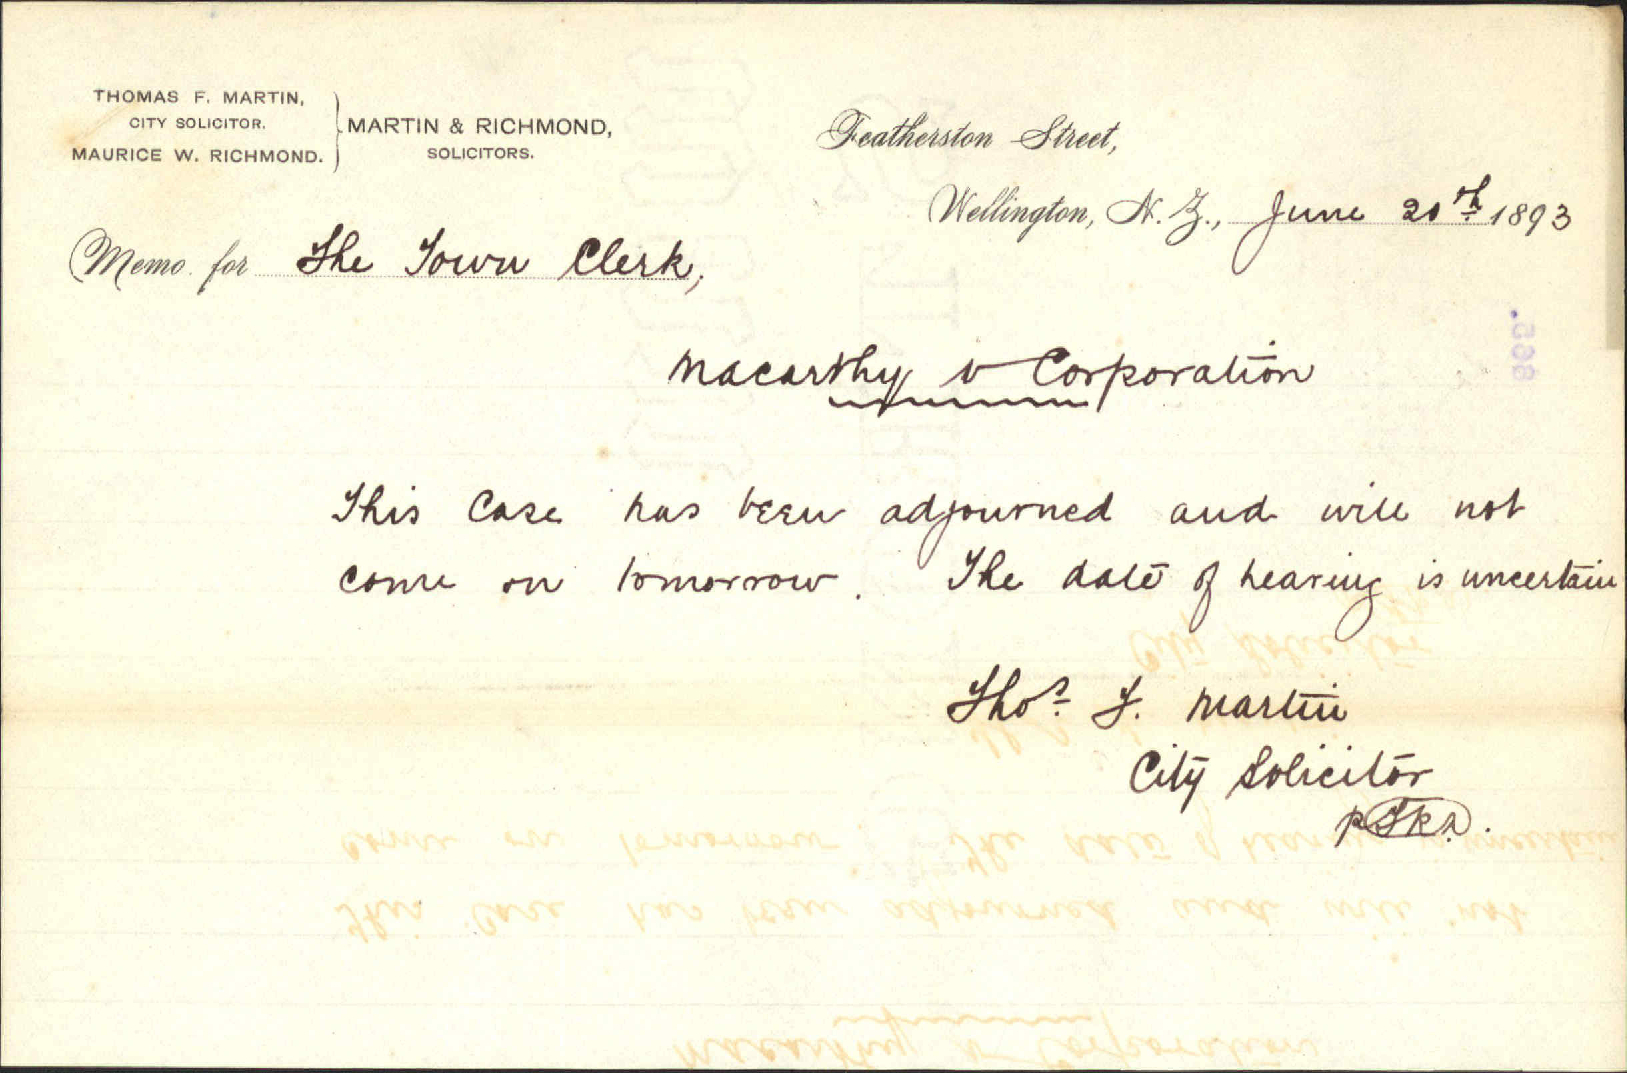 THOMAS F. MARTIN,
CITY SOLICITOR.
MAURICE W. RICHMOND.
MARTIN & RICHMOND,
SOLICITORS.
Featherston Street,
Wellington, N. Z., June 20th 1893
Memo. for The Town Clerk,
Macarthy v Corporation
865.
This Case has been adjourned and will not
come on tomorrow. The date of hearing is uncertain
Thos. F. Martin
City Solicitor
p